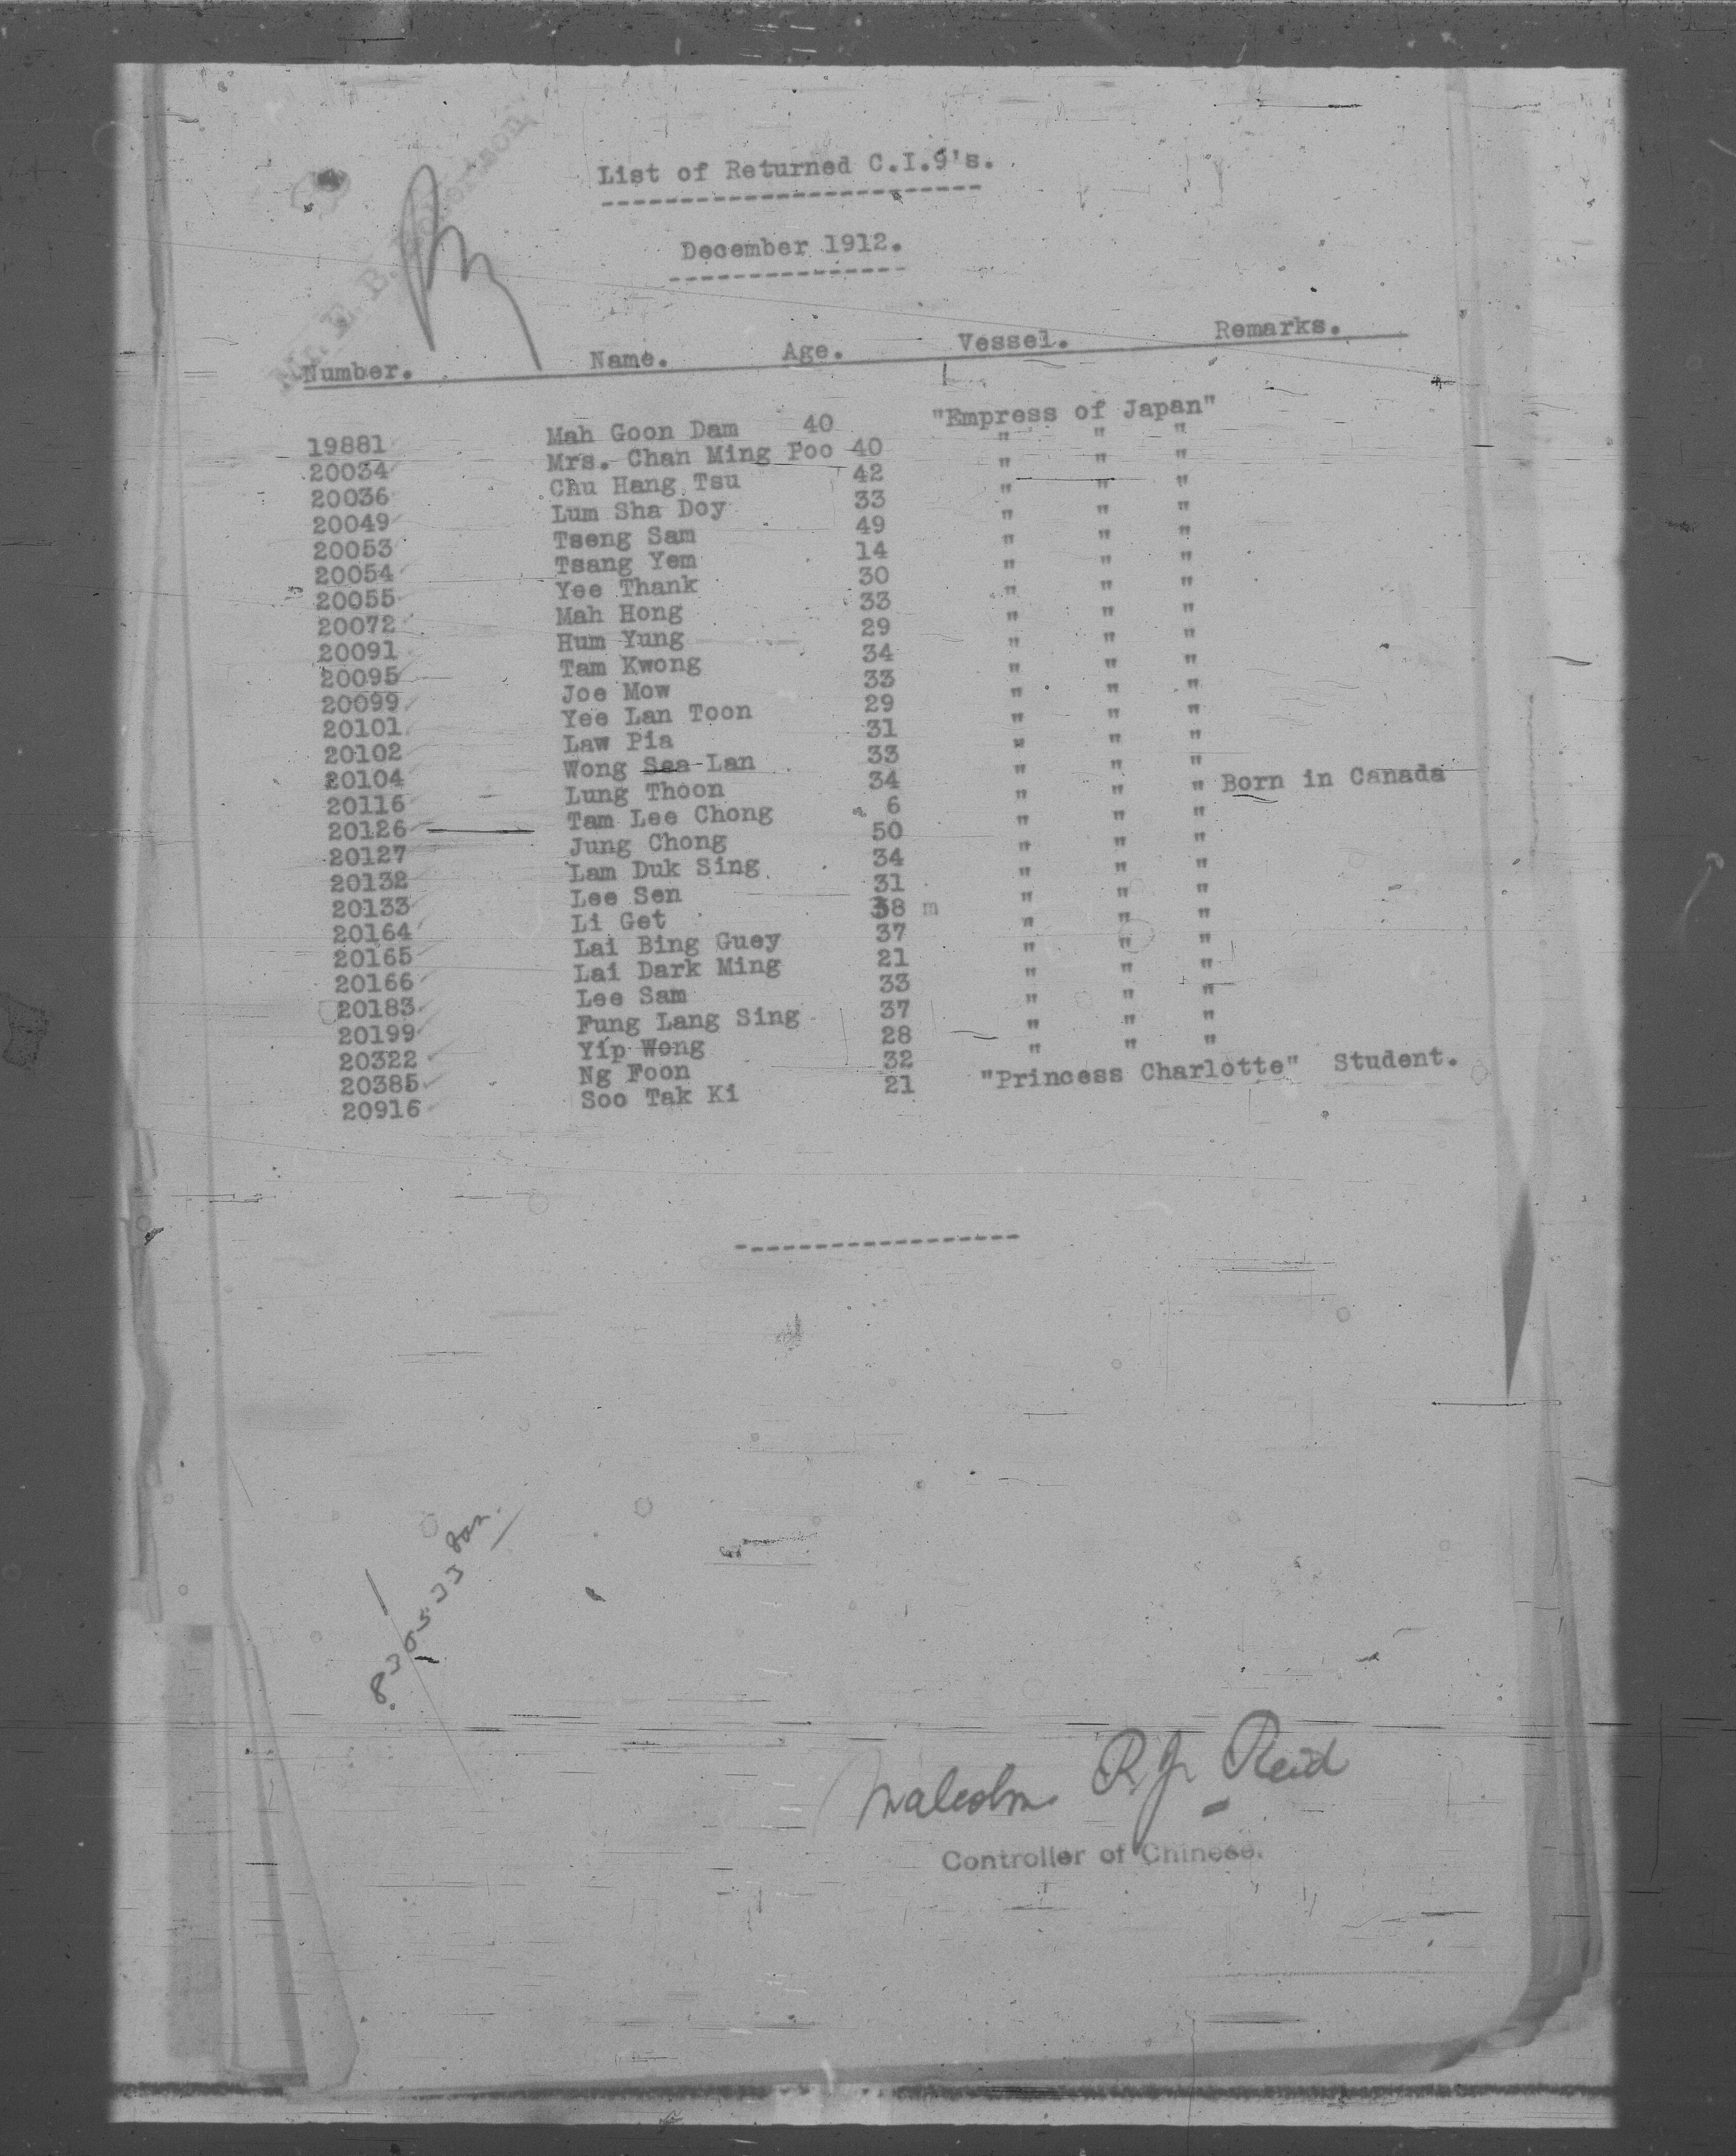 Mr. E. B. Robertson
List of Returned C.I.9's.
December 1912.
Number. Name. Age. Vessel. Remarks.
19881 Mah Goon Dam 40 "Empress of Japan"
20034 Mrs. Chan Ming Poo 40 " " "
20036 Chu Hang Tsu 42 " " "
20049 Lum Sha Doy 33 " " "
20053 Tseng Sam 49 " " "
20054 Tsang Yem 14 " " "
20055 Yee Thank 30 " " "
20072 Mah Hong 33 " " "
20091 Hum Yung 29 " " "
20095 Tam Kwong 34 " " "
20099 Joe Mow 33 " " "
20101 Yee Lan Toon 29 " " "
20102 Law Pia 31 " " "
20104 Wong Sea Lan 33 " " "
20116 Lung Thoon 34 " " "
20126 Tam Lee Chong 6 " " " Born in Canada
20127 Jung Chong 50 " " "
20132 Lam Duk Sing 34 " " "
20133 Lee Sen 31 " " "
20164 Li Get 38 m " " "
20165 Lai Bing Guey 37 " " "
20166 Lai Dark Ming 21 " " "
20183 Lee Sam 33 " " "
20199 Fung Lang Sing 37 " " "
20322 Yip Wong 28 " " "
20385 Ng Foon 32 " " "
20916 Soo Tak Ki 21 "Princess Charlotte" Student.
Malcolm R J Reid
Controller of Chinese.